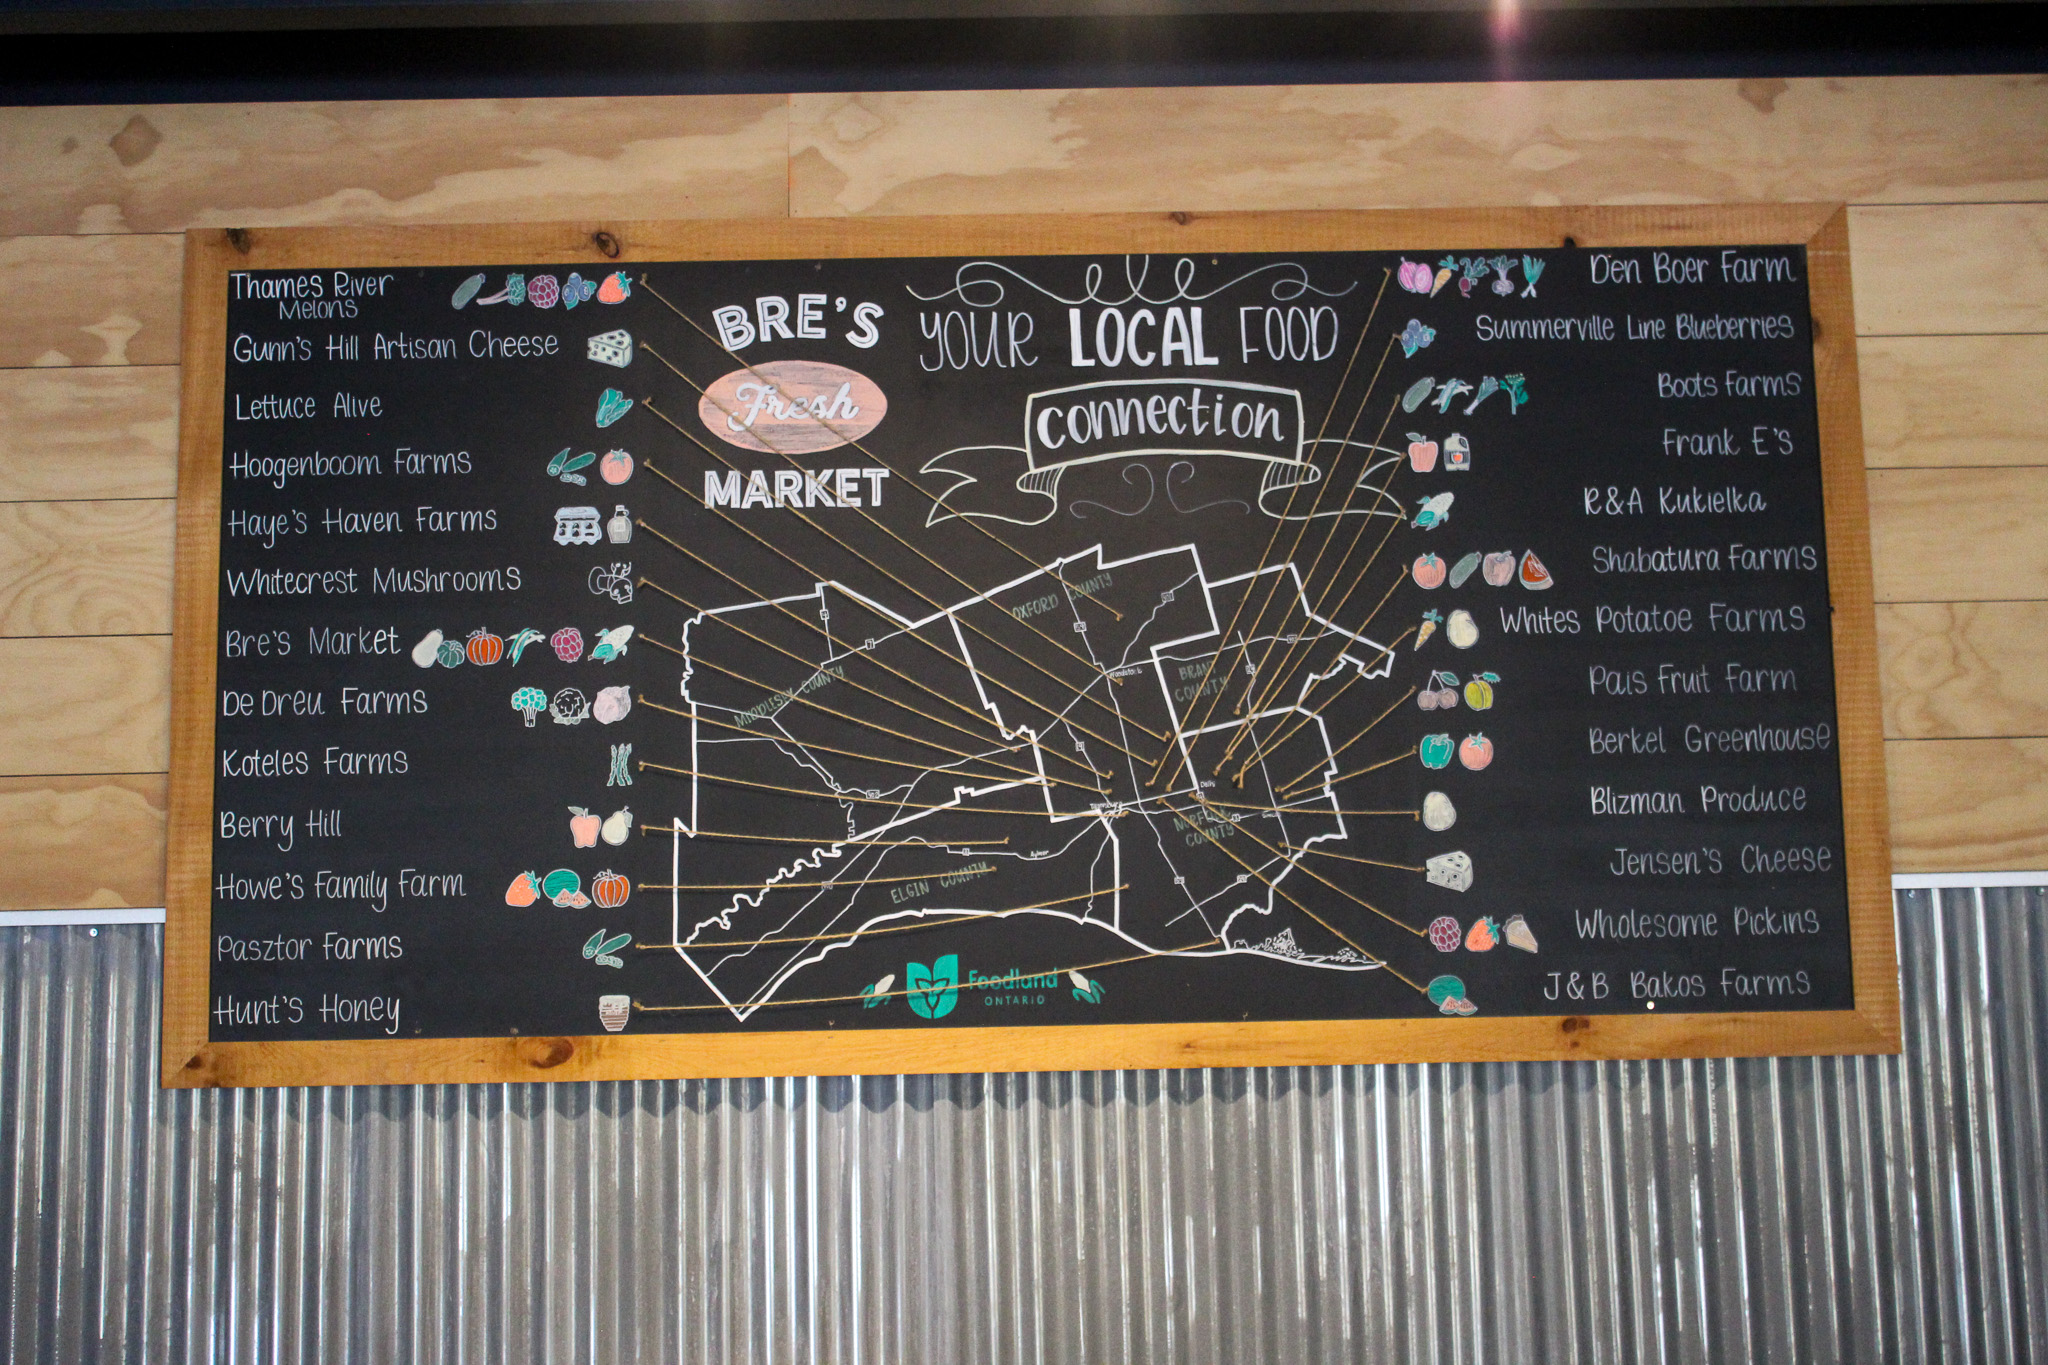 Thames River
Melons
Gunn's Hill Artisan Cheese
Lettuce Alive
Hoogenboom Farms
Haye's Haven Farms
Whitecrest Mushrooms
Bre's Market
De Dreu Farms
Koteles Farms
Berry Hill
Howe's Family Farm
Pasztor Farms
Hunt's Honey
BRE'S
Fresh
MARKET
YOUR LOCAL FOOD
connection
OXFORD COUNTY
MIDDLESEX COUNTY
BRANT
COUNTY
Woodstock
Delhi
NORFOLK
COUNTY
Aylmer
ELGIN COUNTY
Foodland
ONTARIO
Den Boer Farm
Summerville Line Blueberries
Boots Farms
Frank E's
R&A Kukielka
Shabatura Farms
Whites Potatoe Farms
Pais Fruit Farm
Berkel Greenhouse
Blizman Produce
Jensen's Cheese
Wholesome Pickins
J&B Bakos Farms